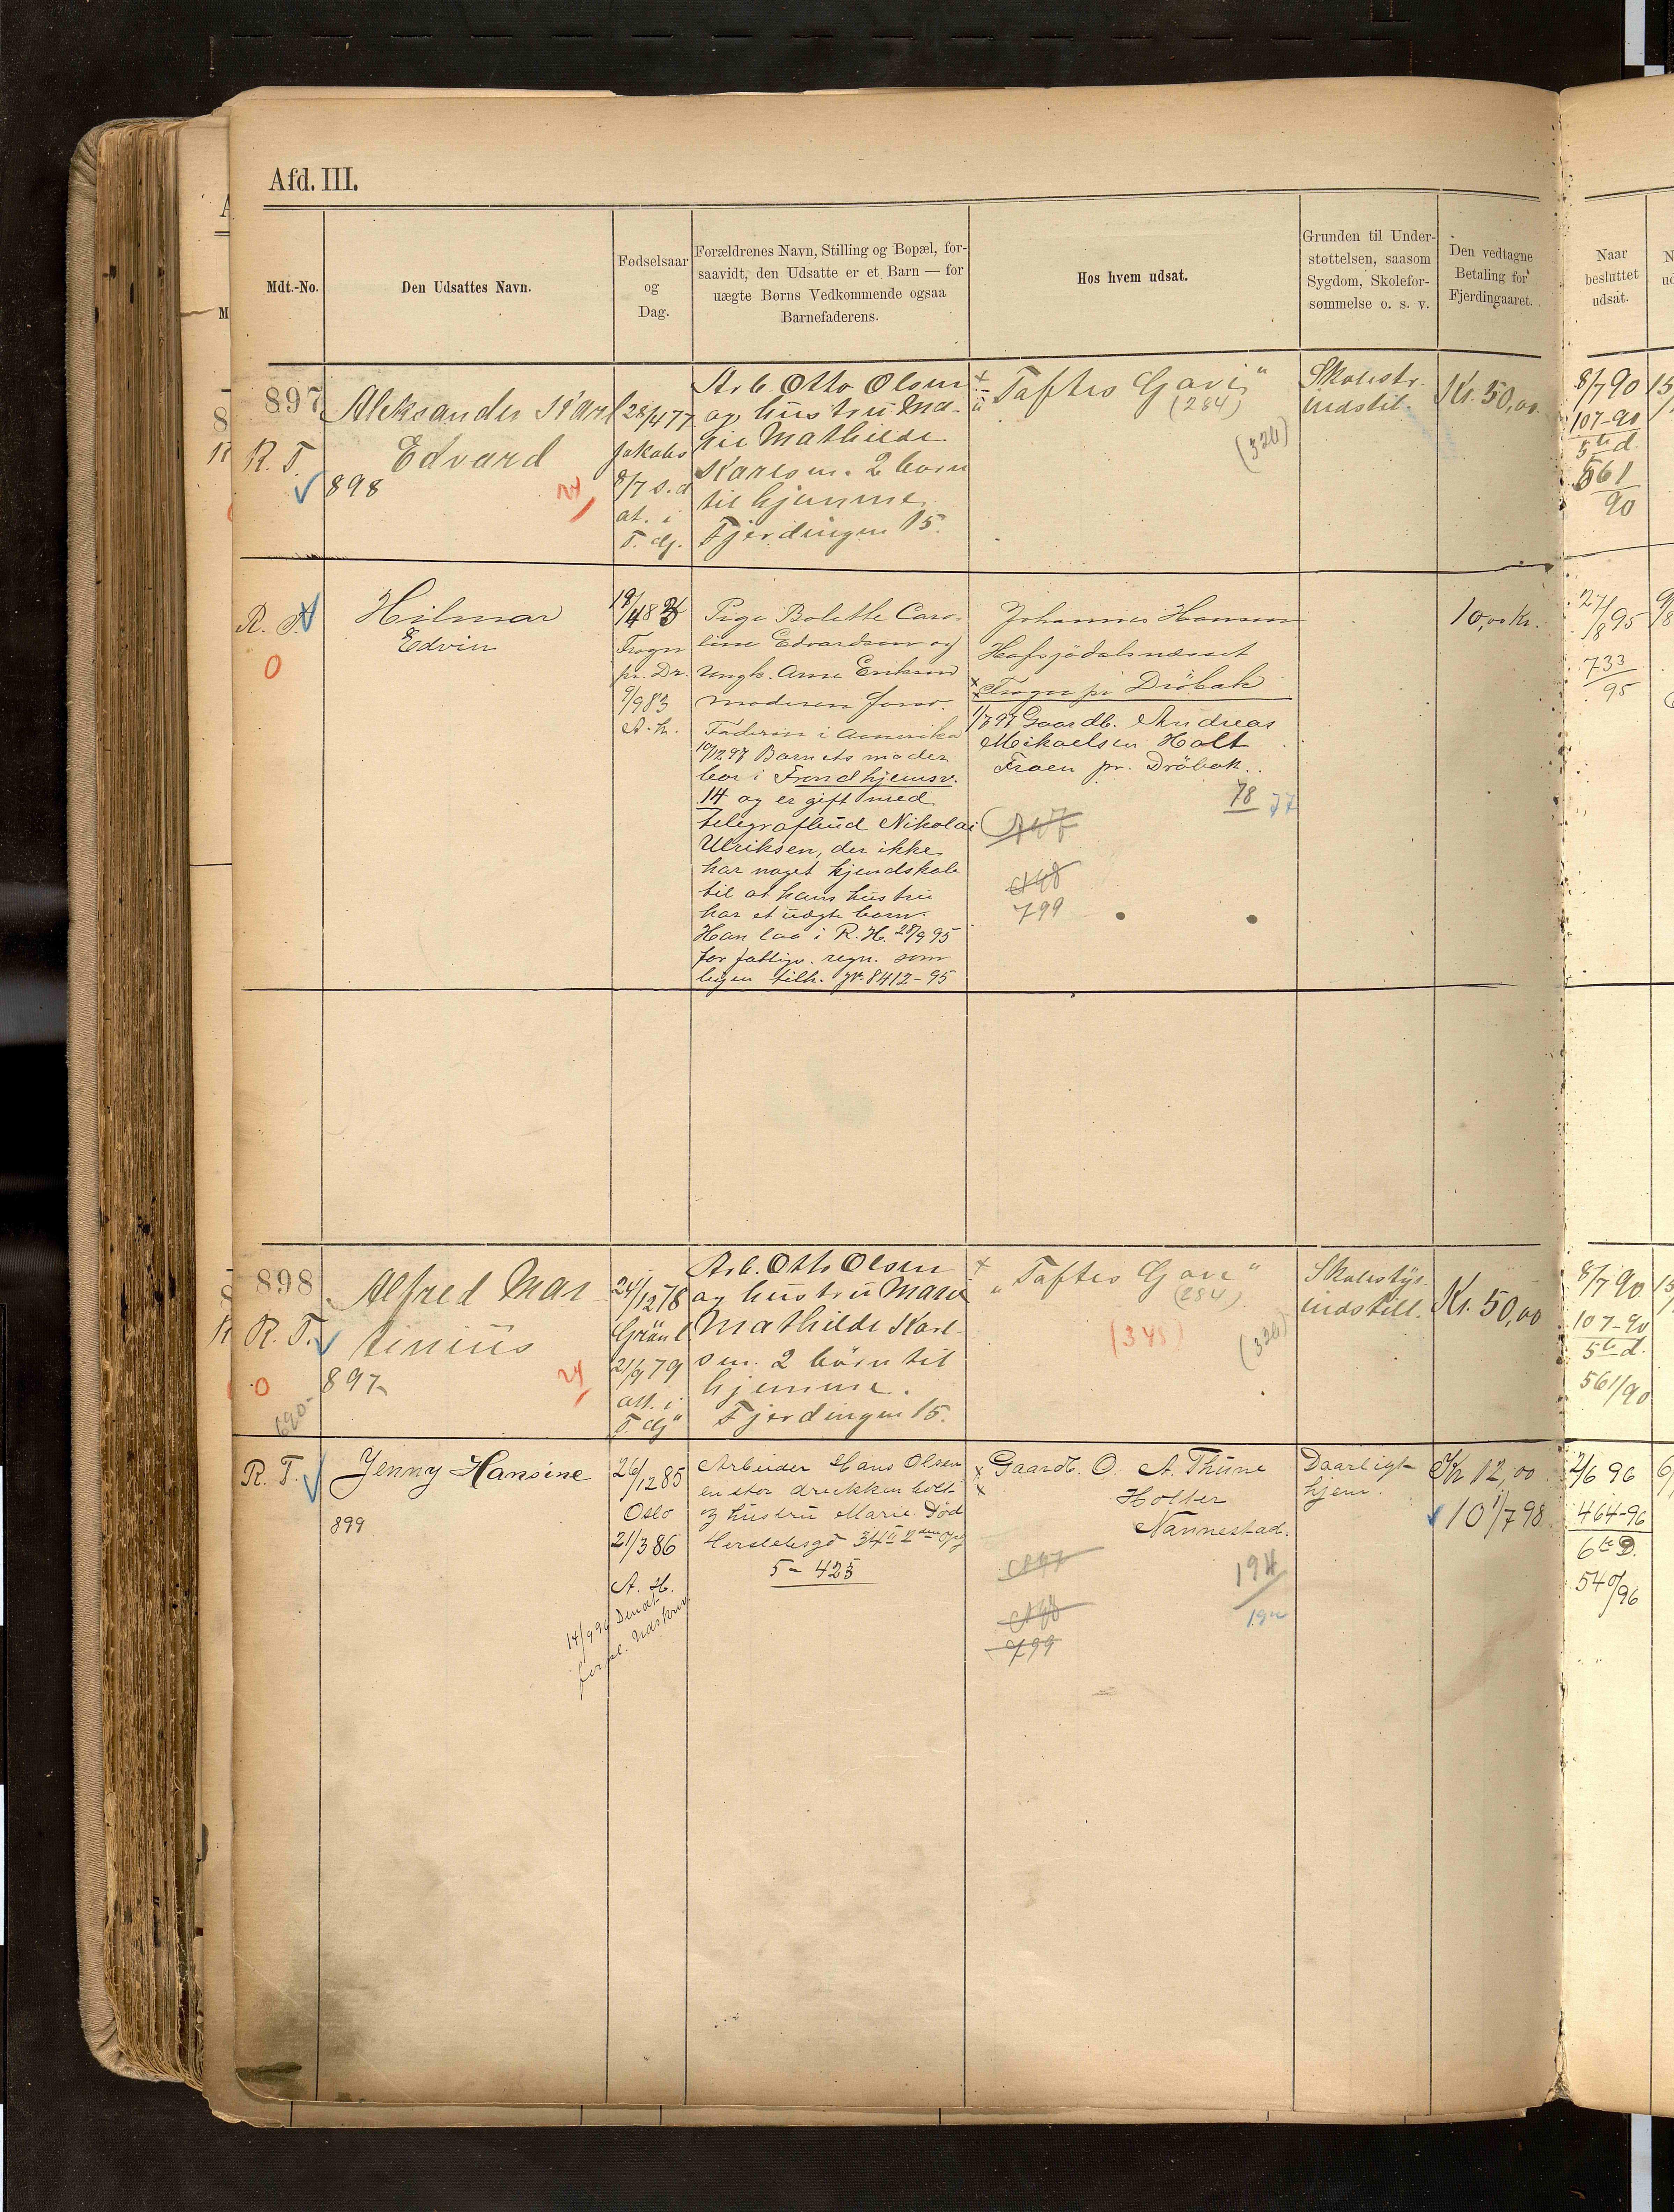 Afd. III.
Mdt.-No.
Den Udsattes Navn.
Fødselsaar
og
Dag.
Forældrenes Navn, Stilling og Bopæl, for-
saavidt, den Udsatte er et Barn — for
uægte Børns Vedkommende ogsaa
Barnefaderens.
Hos hvem udsat.
Grunden til Under-
støttelsen, saasom
Sygdom, Skolefor-
sømmelse o. s. v.
Den vedtagne
Betaling for
Fjerdingaaret.
Naar
besluttet
udsat.
897
R. T.
Aleksander Karl
Edvard
898
28/4 77
Jakobs
8/7 s. d
at. i
T. G.
Arb. Otto Olsen
og hustru Ma-
rie Mathilde
Karlsen. 2 børn
til hjemme
Fjerdingen 15.
"Toftes Gave"
(284)
(326)
Skolestr.
indstil.
Kr. 50,00
8/7 90
107-90
5te d.
561
90
R. T.
O
Hilmar
Edvin
19/4 83
Frogn
pr. Dr.
9/9 83
A. h.
Pige Bolette Caro-
line Edvardsen og
Ungk. Arne Eriksen
moderen forsv.
Faderen i Amerika
10/12 97 Barnets moder
bor i Trondhjemsv.
14 og er gift med
telegrafbud Nikolai
Ulriksen, der ikke
har noget kjendskab
til at hans hustru
har et uægte barn.
Han laa i R. H. 28/9 95
for fattigv. regn. som
legen tilh. Jr. 8412-95
Johannes Hansen
Hafsjødalsnæsset
Frogn pr Drøbak
1/7 97 Gaardb. Andreas
Mikaelsen Holt
Froen pr. Drøbak.
78 77
799
10,00 Kr.
27/8 95
733
95
898
R. T.
O
Alfred Mar-
tinius
897
24/12 78
Grønl
21/9 79
att. i
T. G
Arb. Otto Olsen
og hustru Marie
Mathilde Karl-
sen. 2 børn til
hjemme.
Fjerdingen 15.
"Toftes Gave"
(284)
(345)
(326)
Skolestyr.
indstill.
Kr. 50,00
8/7 90
107-90
5te d.
561/90
R. T.
Jenny Hansine
899
26/12 85
Oslo
21/3 86
A. H.
Arbeider Hans Olsen
en stor drukkenbolt
og hustru Marie. Død
5 - 425
Gaardb. O. A. Thune
Holter
Nannestad.
194
799
Daarligt
hjem.
Kr 12,00
10 1/7 98
2/6 96
464-96
6te D.
540/96